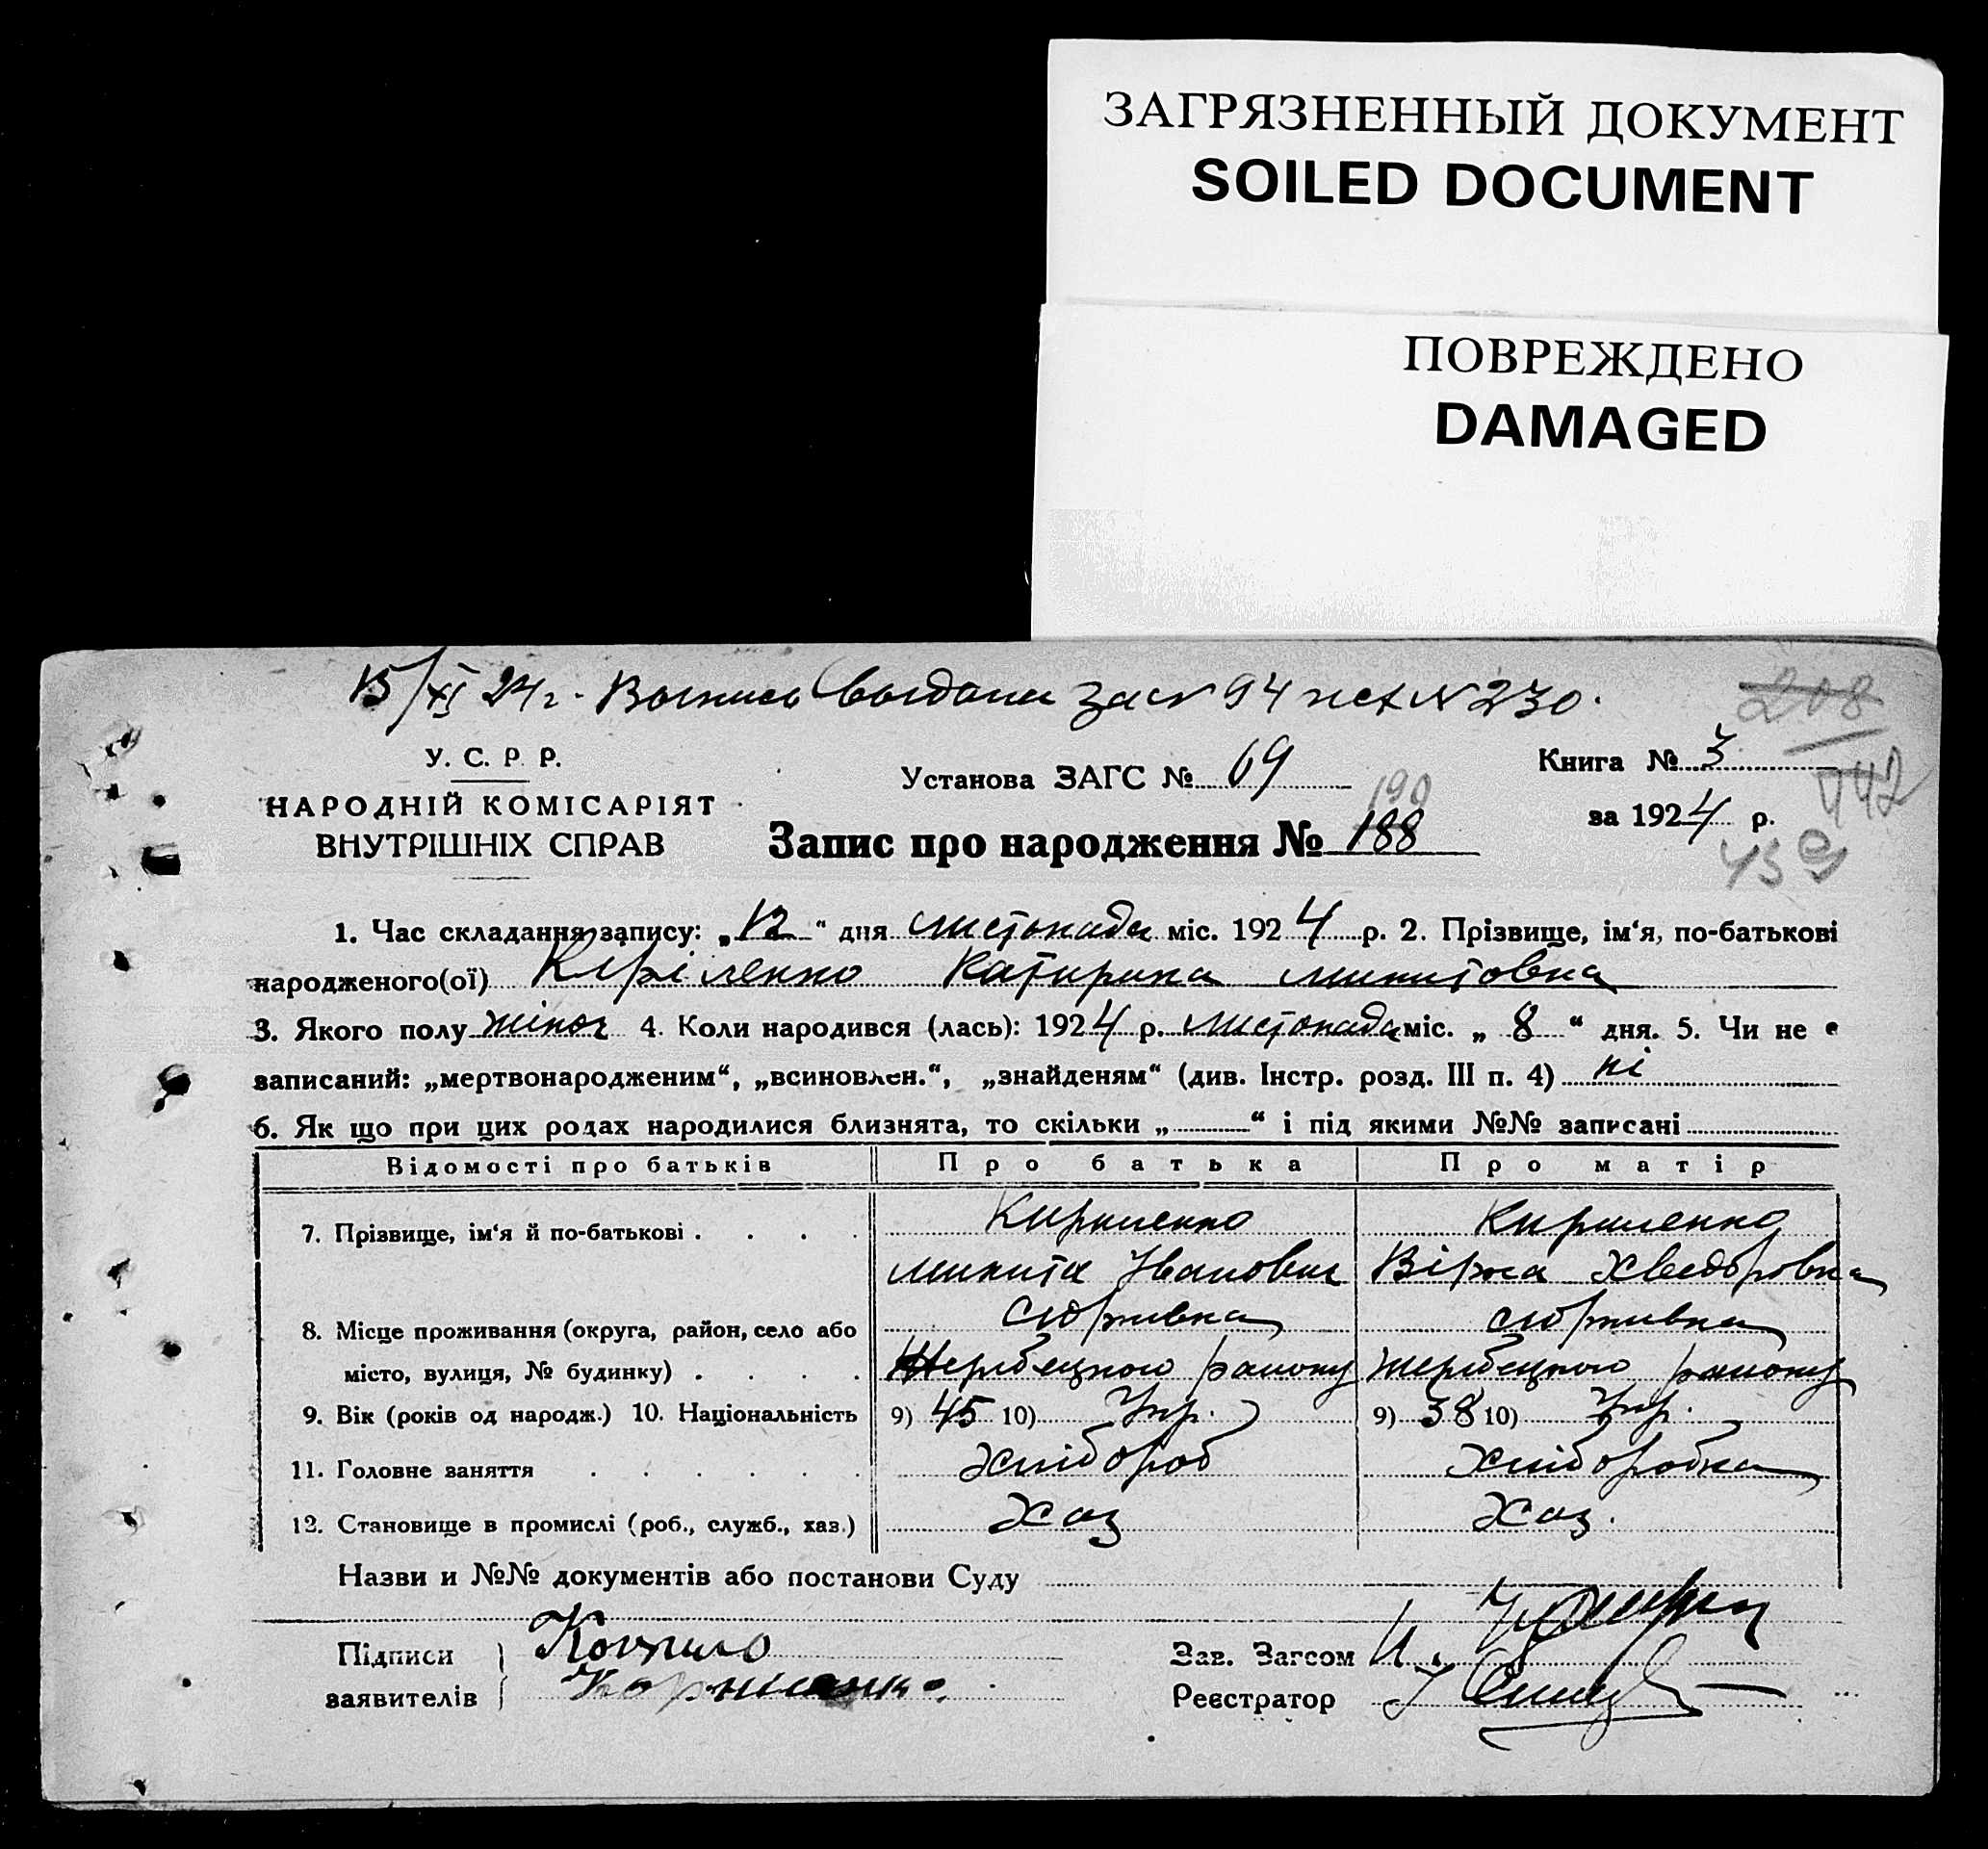 ЗАГРЯЗНЕННЫЙ ДОКУМЕНТ
SOILED DOCUMENT
ПОВРЕЖДЕНО
DAMAGED
15/XI 24 г. Выпись выдана за № 94 N 230.
208
У. С. Р. Р.
НАРОДНІЙ КОМІСАРІЯТ
ВНУТРІШНІХ СПРАВ
Установа ЗАГС № 69
Книга № 3
442
190
Запис про народження № 188
за 1924 р.
439
1. Час складання запису: „12“ дня листопада міс. 1924 р. 2. Прізвище, ім‘я, по-батькові
народженого(ої) Кіріленко Катирина Микитовна
3. Якого полу жіноч 4. Коли народився (лась): 1924 р. листопада міс. „8“ дня. 5. Чи не є
записаний: „мертвонародженим“, „всиновлен.“, „знайденям“ (див. Інстр. розд. III п. 4) ні
6. Як що при цих родах народилися близнята, то скільки „ “ і під якими №№ записані
Відомості про батьків Про батька Про матір
7. Прізвище, ім‘я й по-батькові Кириленко Кириленко
Микита Іванович Вірка Хведоровна
8. Місце проживання (округа, район, село або Сюржівка Сюржівка
місто, вулиця, № будинку) Жербецкого району Жербецкого району
9. Вік (років од народж.) 10. Національність 9) 45 10) Укр. 9) 38 10) Укр.
11. Головне заняття Хлібороб Хліборобка
12. Становище в промислі (роб., служб., хаз.) Хаз Хаз.
Назви и №№ документів або постанови Суду
Підписи
заявителів
Зав. Загсом
Реєстратор